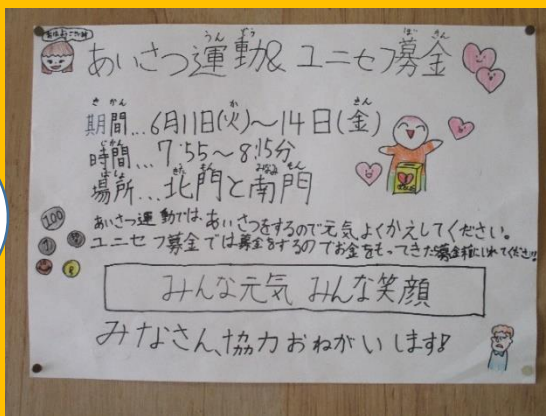 あいさつ運動&ユニセフ募金
期間…6月11日(火)〜14日(金)
時間…7:55〜8:15分
場所…北門と南門
あいさつ運動では、あいさつをするので元気よくかえしてください。
ユニセフ募金では募金をするのでお金をもってきた募金箱にいれてください!!
みんな元気 みんな笑顔
みなさん、協力おねがいします!
100